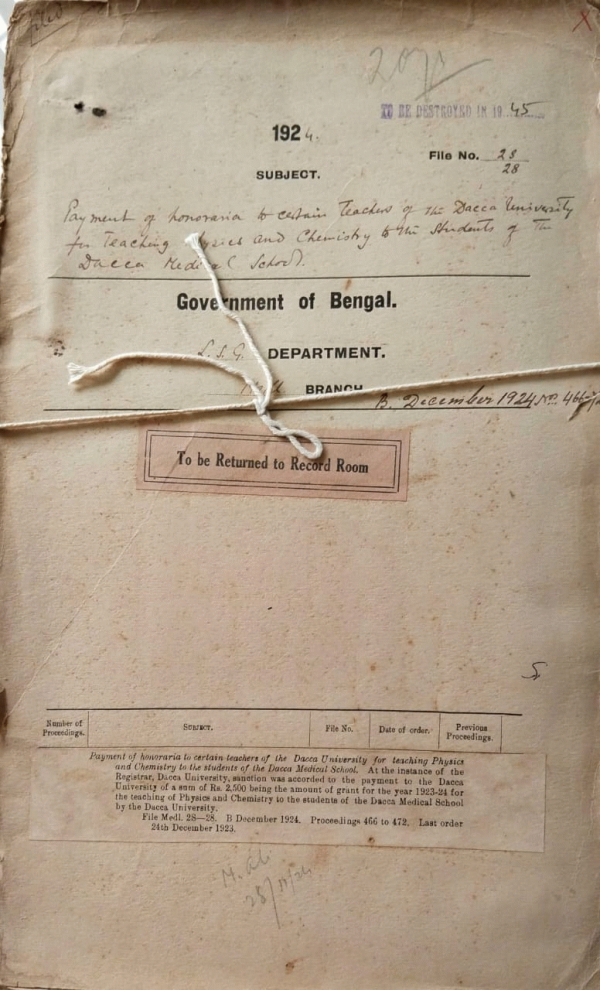 filed
TO BE DESTROYED IN 19 45
1924.
File No. 28
28
SUBJECT.
Payment of honoraria to certain Teachers of the Dacca University
for Teaching Physics and Chemistry to the Students of the
Dacca Medical School.
Government of Bengal.
L. S. G. DEPARTMENT.
BRANCH
B. December 1924 No. 466
To be Returned to Record Room
Number of Proceedings. SUBJECT. File No. Date of order. Previous Proceedings.
Payment of honoraria to certain teachers of the Dacca University for teaching Physics
and Chemistry to the students of the Dacca Medical School. At the instance of the
Registrar, Dacca University, sanction was accorded to the payment to the Dacca
University of a sum of Rs. 2,500 being the amount of grant for the year 1923-24 for
the teaching of Physics and Chemistry to the students of the Dacca Medical School
by the Dacca University.
File Medl. 2S—28. B December 1924. Proceedings 466 to 472. Last order
24th December 1923.